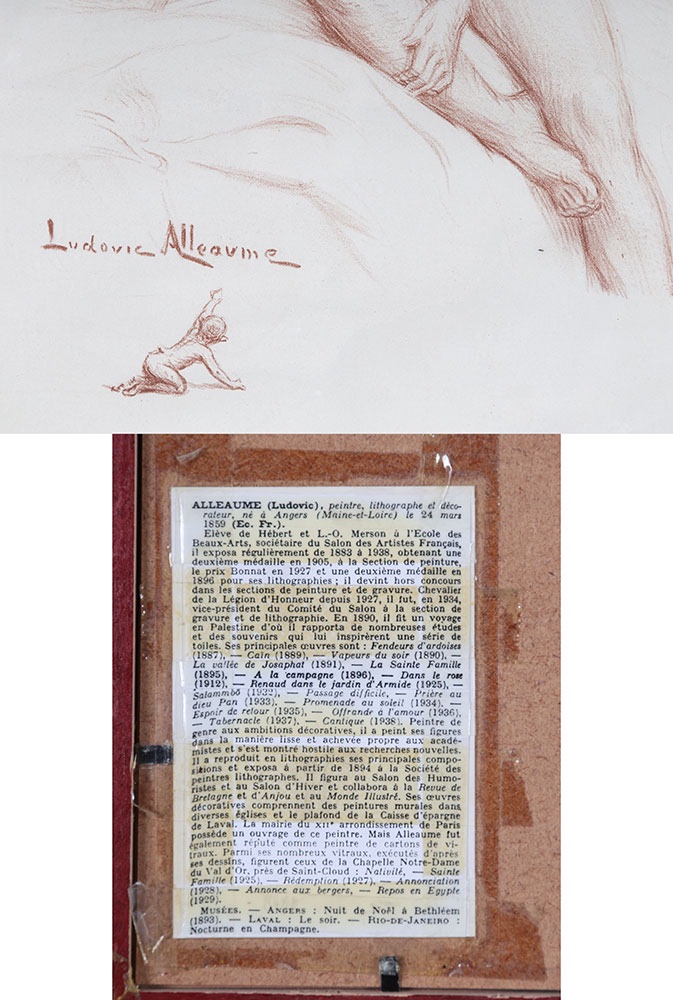 Ludovic Alleaume
ALLEAUME (Ludovic), peintre, lithographe et déco-
rateur, né à Angers (Maine-et-Loire) le 24 mars
1859 (Ec. Fr.).
Elève de Hébert et L.-O. Merson à l'Ecole des
Beaux-Arts, sociétaire du Salon des Artistes Français,
il exposa régulièrement de 1883 à 1938, obtenant une
deuxième médaille en 1905, à la Section de peinture,
le prix Bonnat en 1927 et une deuxième médaille en
1896 pour ses lithographies ; il devint hors concours
dans les sections de peinture et de gravure. Chevalier
de la Légion d'Honneur depuis 1927, il fut, en 1934,
vice-président du Comité du Salon à la section de
gravure et de lithographie. En 1890, il fit un voyage
en Palestine d'où il rapporta de nombreuses études
et des souvenirs qui lui inspirèrent une série de
toiles. Ses principales œuvres sont : Fendeurs d'ardoises
(1887), — Caïn (1889), — Vapeurs du soir (1890), —
La vallée de Josaphat (1891), — La Sainte Famille
(1895), — A la campagne (1896), — Dans le rose
(1912), — Renaud dans le jardin d'Armide (1925), —
Salammbô (1932), — Passage difficile, — Prière au
dieu Pan (1933). — Promenade au soleil (1934). —
Espoir de retour (1935), — Offrande à l'amour (1936),
— Tabernacle (1937), — Cantique (1938). Peintre de
genre aux ambitions décoratives, il a peint ses figures
dans la manière lisse et achevée propre aux acadé-
mistes et s'est montré hostile aux recherches nouvelles.
Il a reproduit en lithographies ses principales compo-
sitions et exposa à partir de 1894 à la Société des
peintres lithographes. Il figura au Salon des Humo-
ristes et au Salon d'Hiver et collabora à la Revue de
Bretagne et d'Anjou et au Monde Illustré. Ses œuvres
décoratives comprennent des peintures murales dans
diverses églises et le plafond de la Caisse d'épargne
de Laval. La mairie du XIIe arrondissement de Paris
possède un ouvrage de ce peintre. Mais Alleaume fut
également réputé comme peintre de cartons de vi-
traux. Parmi ses nombreux vitraux, exécutés d'après
ses dessins, figurent ceux de la Chapelle Notre-Dame
du Val d'Or, près de Saint-Cloud : Nativité, — Sainte
Famille (1925), — Rédemption (1927). — Annonciation
(1928). — Annonce aux bergers, — Repos en Egypte
(1929).
MUSÉES. — ANGERS : Nuit de Noël à Bethléem
(1893). — LAVAL : Le soir. — RIO-DE-JANEIRO :
Nocturne en Champagne.